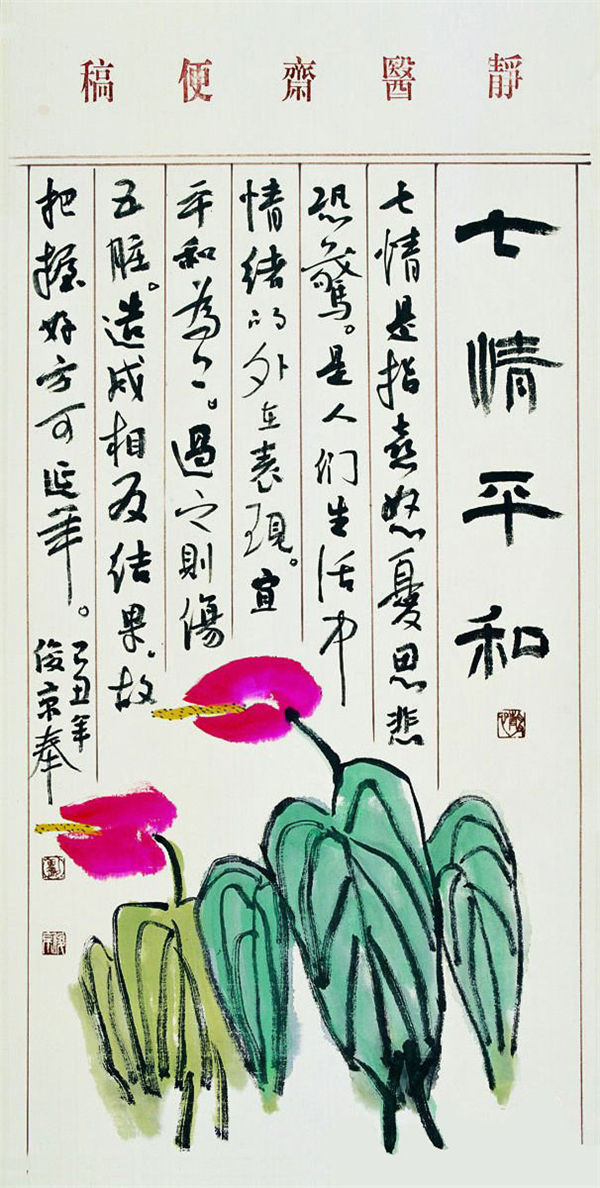 靜醫齋便稿
七情平和
七情是指喜怒憂思悲
恐驚。是人们生活中
情绪的外在表現。宜
平和為上。過之則傷
五脏。造成相反结果。故
把握好方可延年。
己丑年
俊京奉